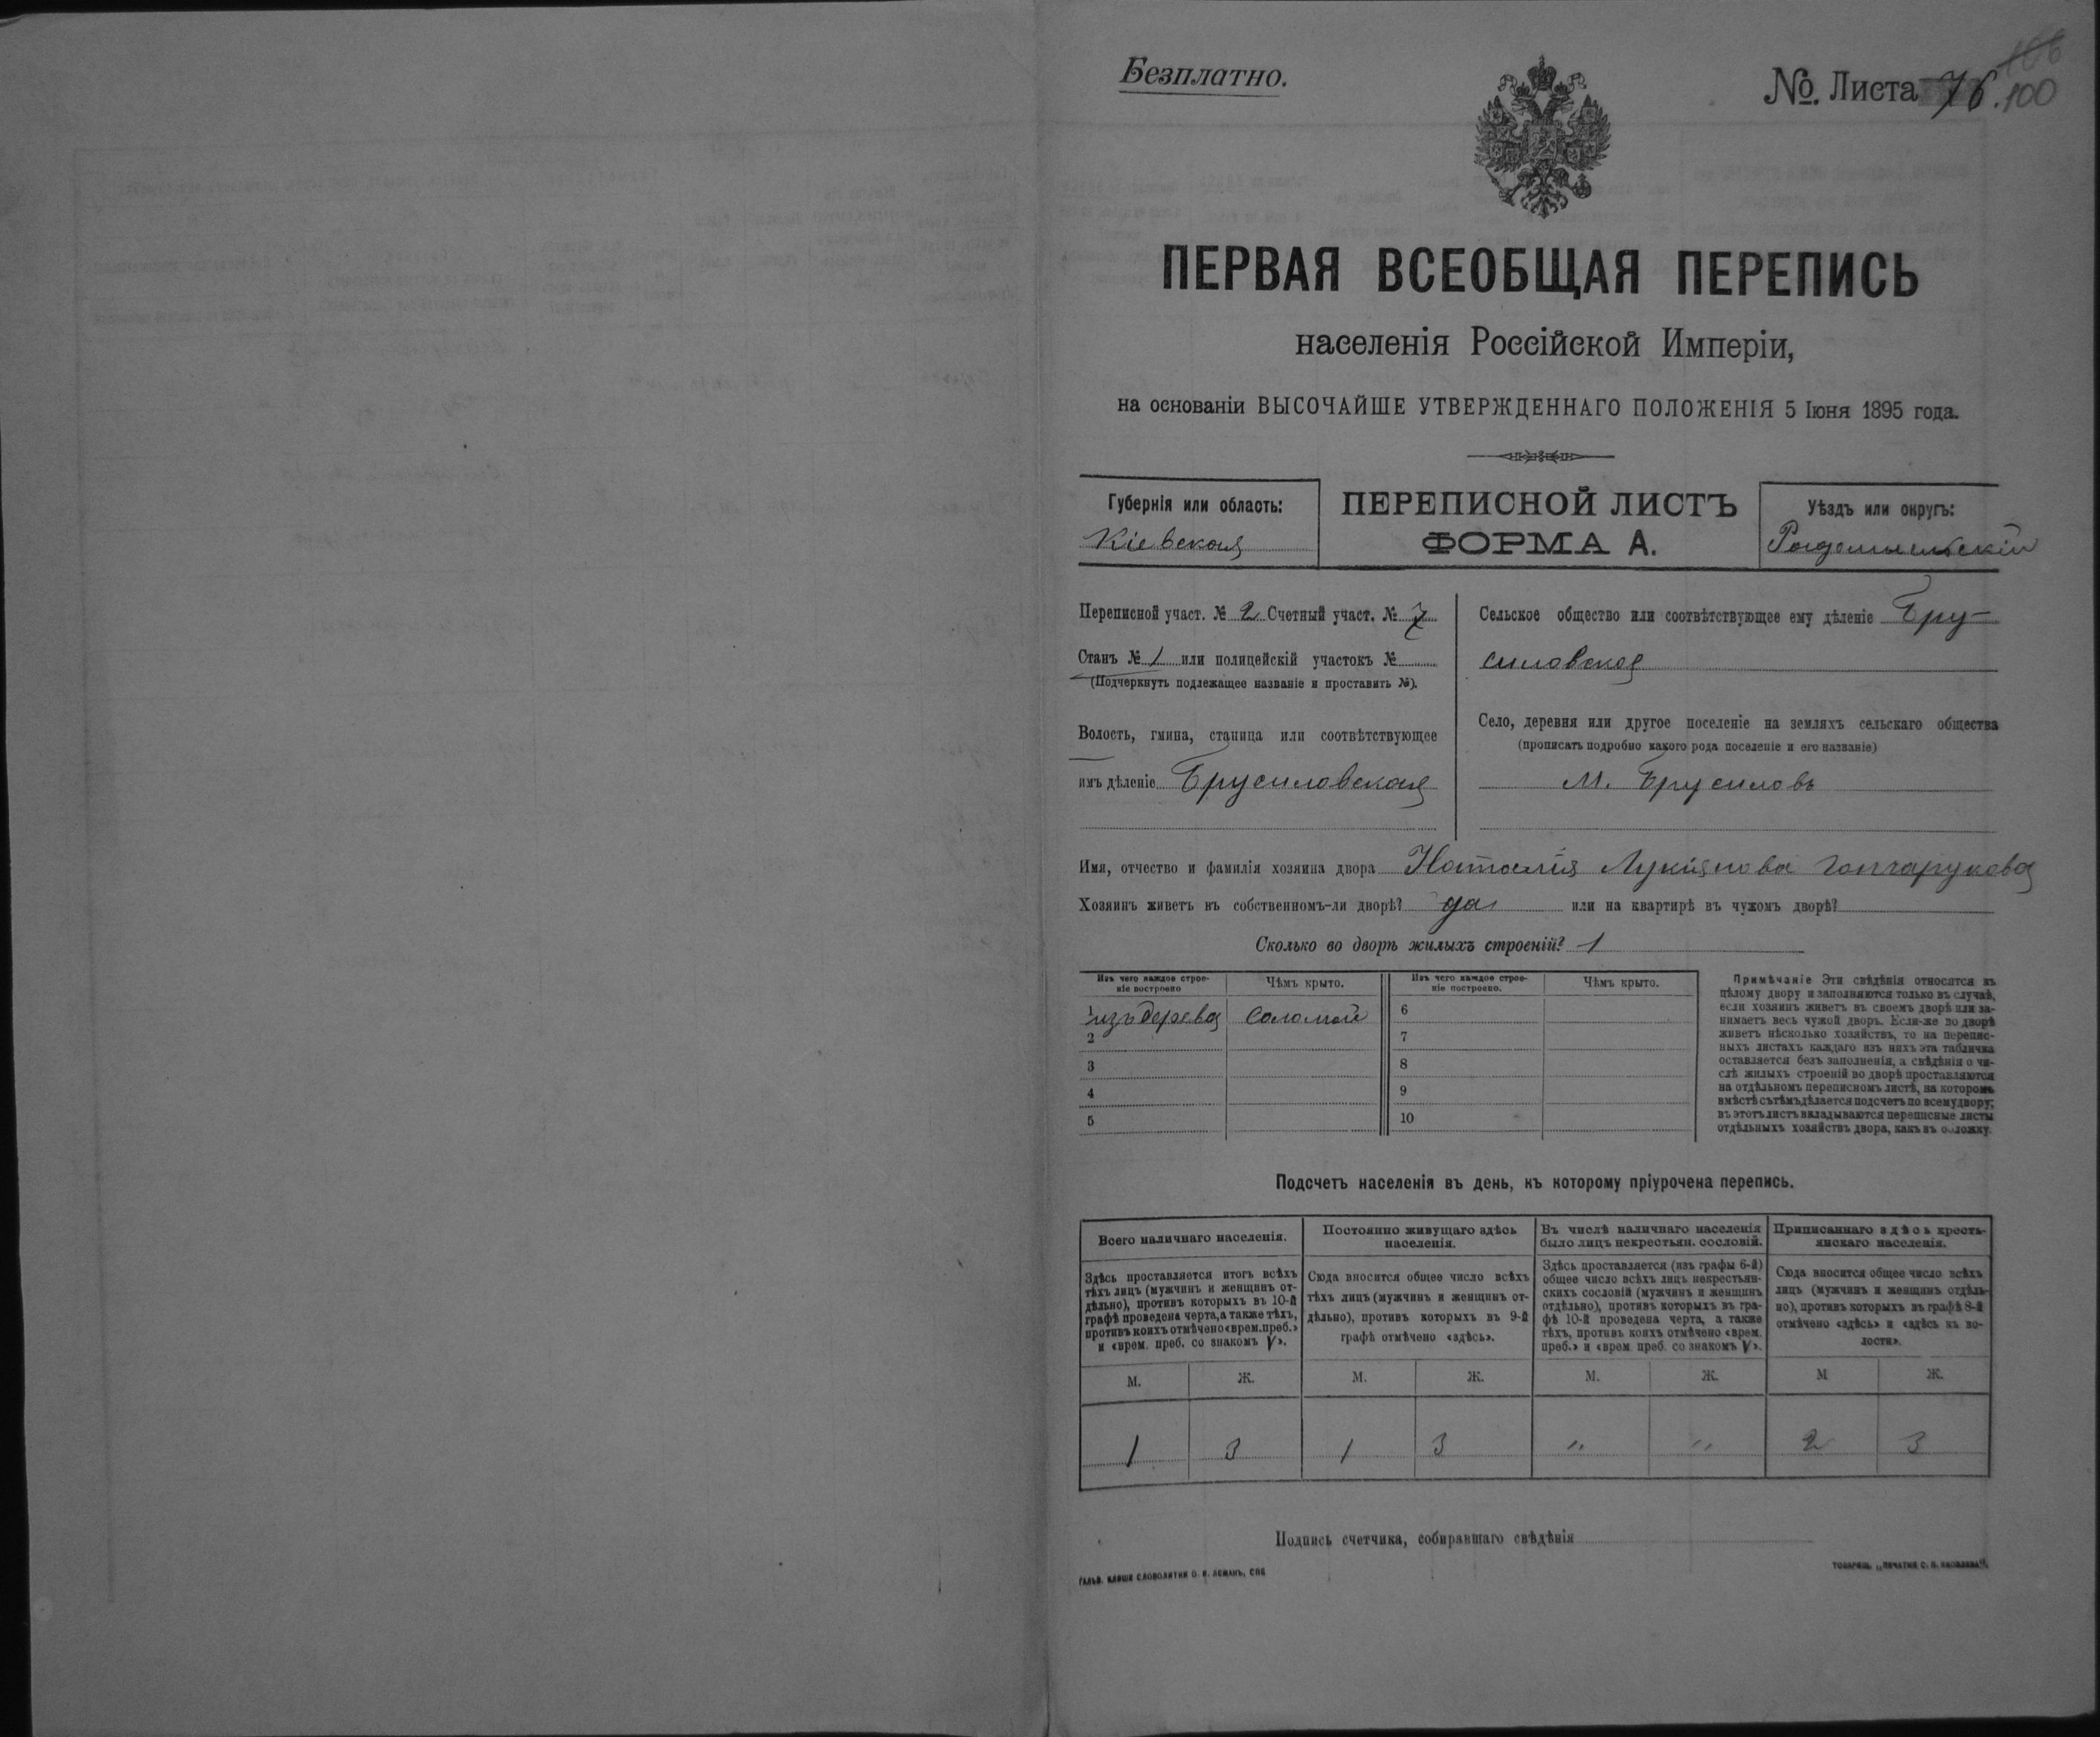 Безплатно.
№ Листа 76. 100
106
ПЕРВАЯ ВСЕОБЩАЯ ПЕРЕПИСЬ
населенія Россійской Имперіи,
на основаніи ВЫСОЧАЙШЕ УТВЕРЖДЕННАГО ПОЛОЖЕНІЯ 5 Іюня 1895 года.
Губернія или область:
Кіевская
ПЕРЕПИСНОЙ ЛИСТЪ
ФОРМА А.
Уѣздъ или округъ:
Радомысльскій
Переписной участ. № 2 Счетный участ. № 7
Станъ № 1 или полицейскій участокъ №
(Подчеркнуть подлежащее названіе и проставить №).
Волость, гмина, станица или соотвѣтствующее
имъ дѣленіе Брусиловская
Сельское общество или соотвѣтствующее ему дѣленіе Бру-
силовское
Село, деревня или другое поселеніе на земляхъ сельскаго общества
(прописать подробно какого рода поселеніе и его названіе)
М. Брусиловъ
Имя, отчество и фамилія хозяина двора Наталія Лукіянова Гончарукова
Хозяинъ живетъ въ собственномъ-ли дворѣ? да или на квартирѣ въ чужомъ дворѣ?
Сколько во дворѣ жилыхъ строеній? 1
Изъ чего каждое строе-
ніе построено
Чѣмъ крыто.
Изъ чего каждое строе-
ніе построено.
Чѣмъ крыто.
1 изъ дерева соломой 6
2 7
3 8
4 9
5 10
Примѣчаніе Эти свѣдѣнія относятся къ
цѣлому двору и заполняются только въ случаѣ,
если хозяинъ живетъ въ своемъ дворѣ или за-
нимаетъ весь чужой дворъ. Если-же во дворѣ
живетъ нѣсколько хозяйствъ, то на перепис-
ныхъ листахъ каждаго изъ нихъ эта табличка
оставляется безъ заполненія, а свѣдѣнія о чи-
слѣ жилыхъ строеній во дворѣ проставляются
на отдѣльномъ переписномъ листѣ, на которомъ
вмѣстѣ съ тѣмъ дѣлается подсчетъ по всему двору;
въ этотъ листъ вкладываются переписные листы
отдѣльныхъ хозяйствъ двора, какъ въ обложку.
Подсчетъ населенія въ день, къ которому пріурочена перепись.
Всего наличнаго населенія.
Здѣсь проставляется итогъ всѣхъ
тѣхъ лицъ (мужчинъ и женщинъ от-
дѣльно), противъ которыхъ въ 10-й
графѣ проведена черта, а также тѣхъ,
противъ коихъ отмѣчено «врем. преб.»
и «врем. преб. со знакомъ V».
Постоянно живущаго здѣсь
населенія.
Сюда вносится общее число всѣхъ
тѣхъ лицъ (мужчинъ и женщинъ от-
дѣльно), противъ которыхъ въ 9-й
графѣ отмѣчено «здѣсь».
Въ числѣ наличнаго населенія
было лицъ некрестьян. сословій.
Здѣсь проставляется (изъ графы 6-й)
общее число всѣхъ лицъ некрестьян-
скихъ сословій (мужчинъ и женщинъ
отдѣльно), противъ которыхъ въ гра-
фѣ 10-й проведена черта, а также
тѣхъ, противъ коихъ отмѣчено «врем.
преб.» и «врем. преб. со знакомъ V».
Приписаннаго здѣсь кресть-
янскаго населенія.
Сюда вносится общее число всѣхъ
лицъ (мужчинъ и женщинъ отдѣль-
но), противъ которыхъ въ графѣ 8-й
отмѣчено «здѣсь» и «здѣсь въ во-
лости».
М. Ж. М. Ж. М. Ж. М Ж.
1 3 1 3 " " 2 3
Подпись счетчика, собиравшаго свѣдѣнія
ГАЛЬВ. КЛИШЕ СЛОВОЛИТНИ О. И. ЛЕМАНЪ, СПБ
ТОВАРИЩ. „ПЕЧАТНЯ С. П. ЯКОВЛЕВА“.